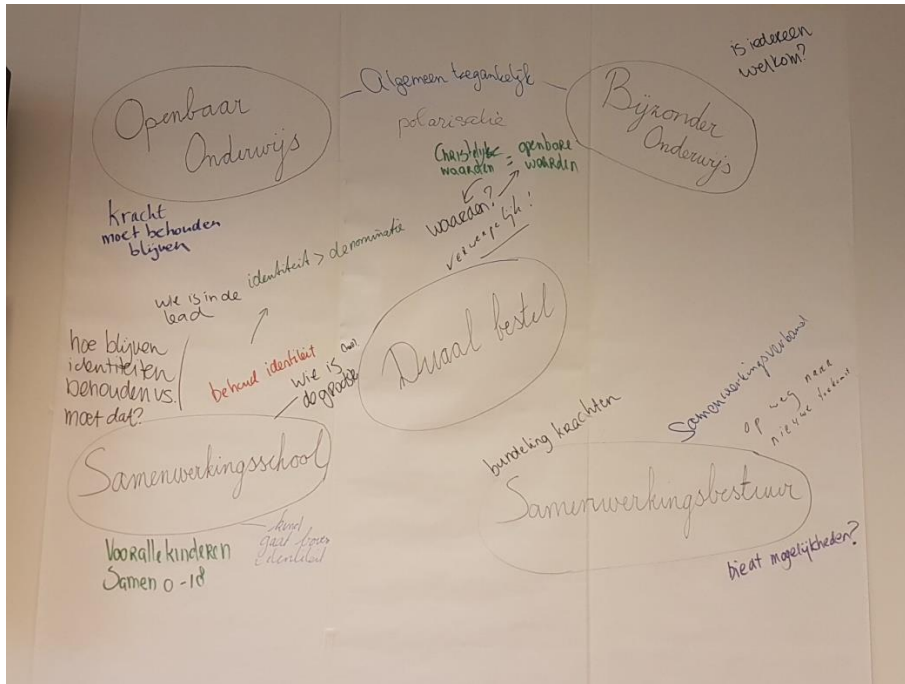 is iedereen
welkom?
Openbaar
Onderwijs
Algemeen toegankelijk
polarisatie
Bijzonder
Onderwijs
Christelijke
waarden
=
openbare
waarden
waarden?
verwerpelijk!
kracht
moet behouden
blijven
identiteit > denominatie
wie is in de
lead
hoe blijven
identiteiten
behouden vs.
moet dat?
behoud identiteit
wie is
de grootste
Duaal bestel
Samenwerkingsschool
kind
gaat boven
identiteit
Voor alle kinderen
Samen 0-18
bundeling krachten
Samenwerkingsverband
op weg naar
nieuwe
Samenwerkingsbestuur
biedt mogelijkheden?